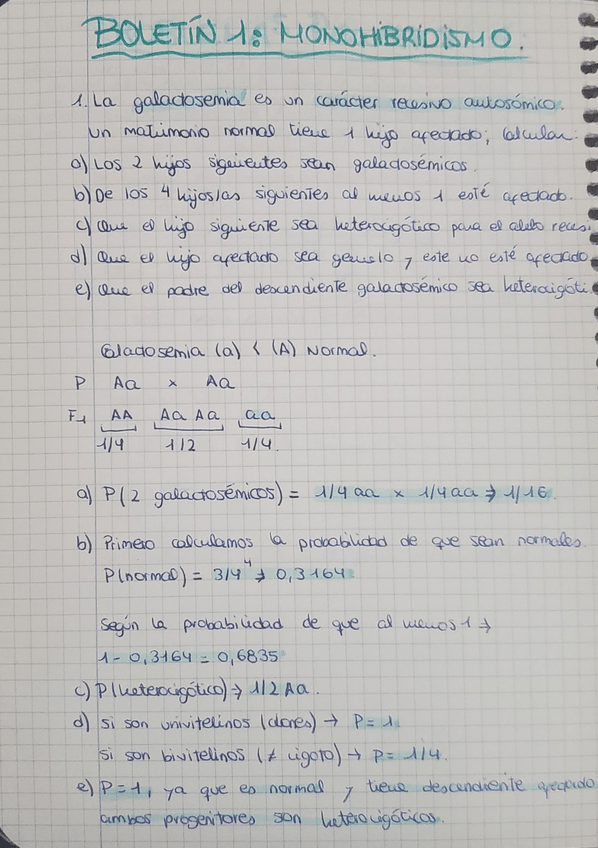 BOLETÍN 1: MONOHIBRIDISMO.
1. La galactosemia es un carácter recesivo autosómico.
Un matrimonio normal tiene 1 hijo afectado; Calcular:
a) Los 2 hijos siguientes sean galactosémicos.
b) De los 4 hijos/as siguientes al menos 1 esté afectado.
c) Que el hijo siguiente sea heterocigótico para el alelo reces.
d) Que el hijo afectado sea gemelo y este no esté afectado
e) Que el padre del descendiente galactosémico sea heterocigóti
Galactosemia (a) < (A) Normal.
P Aa x Aa
F1 AA Aa Aa aa
1/4 1/2 1/4.
a) P(2 galactosémicos) = 1/4 aa x 1/4 aa ⇒ 1/16.
b) Primero calculamos la probabilidad de que sean normales.
P(normal) = 3/4⁴ ⇒ 0,3164.
Según la probabilidad de que al menos 1 ⇒
1 - 0,3164 = 0,6835
c) P(heterocigótico) ⇒ 1/2 Aa.
d) Si son univitelinos (clones) → P = 1.
Si son bivitelinos (≠ cigoto) → P = 1/4.
e) P = 1, ya que es normal y tiene descendiente afectado
ambos progenitores son heterocigóticos.